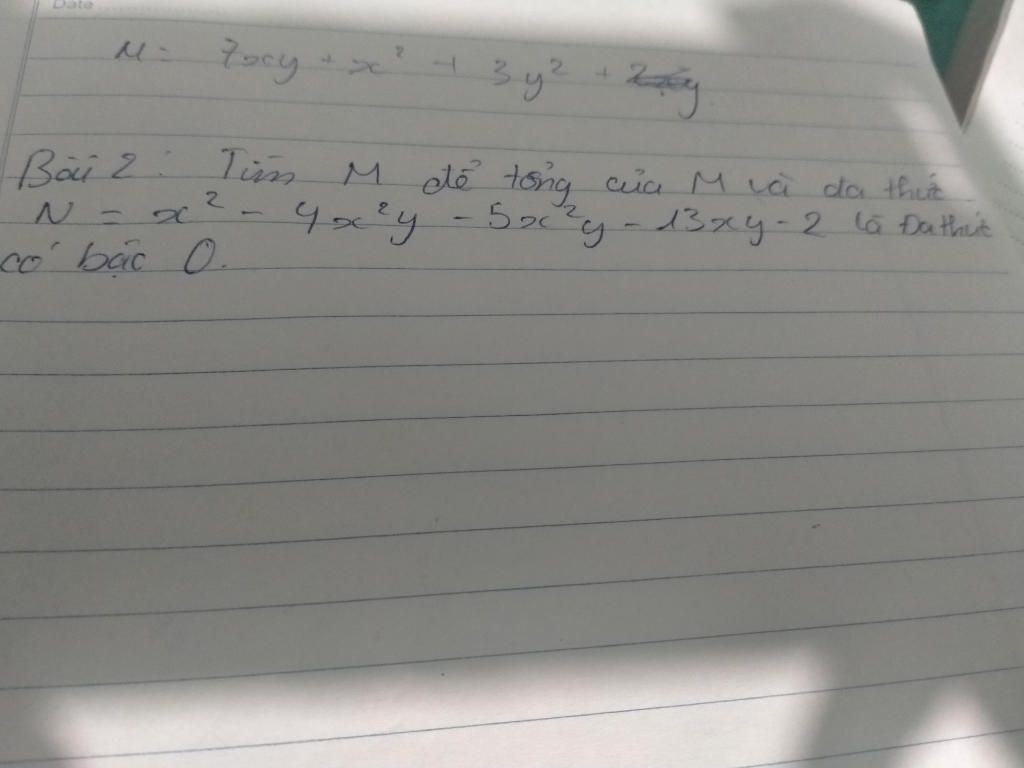 Date
M = 7xy + x² + 3y² + y
Bài 2 : Tìm M để tổng của M và đa thức
N = x² - 4x²y - 5x²y - 13xy - 2 là Đa thức
có bậc 0.